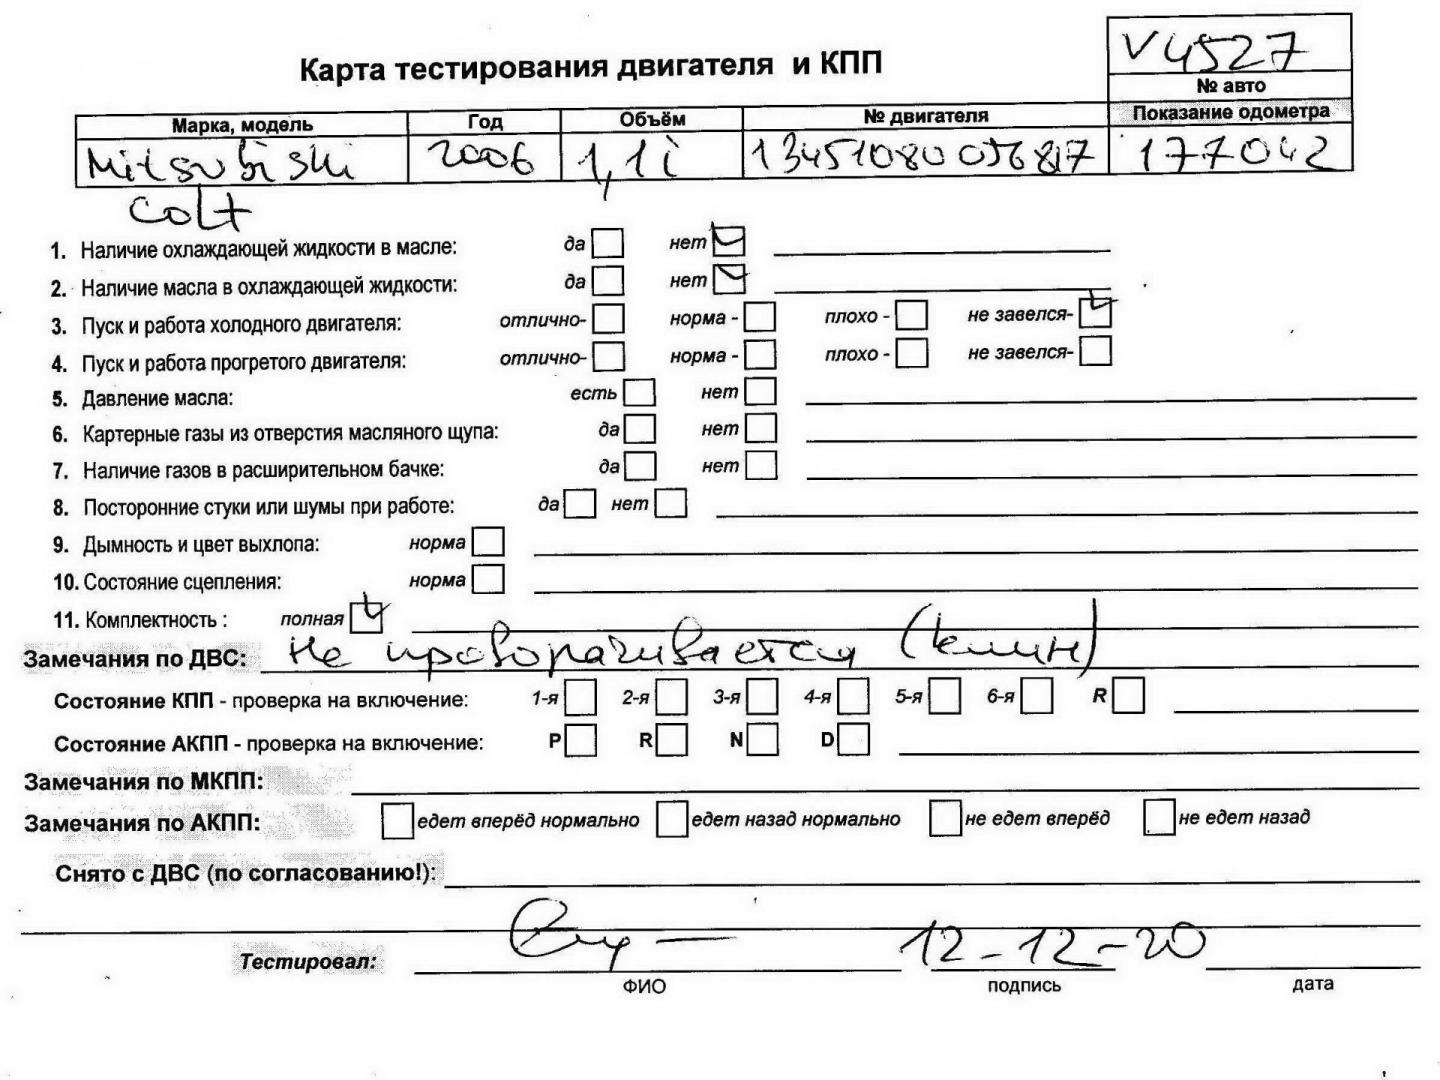 V4527
Карта тестирования двигателя и КПП
№ авто
Марка, модель Год Объём № двигателя Показание одометра
Mitsubishi 2006 1,1i 177042
Colt
1. Наличие охлаждающей жидкости в масле: да нет
2. Наличие масла в охлаждающей жидкости: да нет
3. Пуск и работа холодного двигателя: отлично- норма - плохо - не завелся-
4. Пуск и работа прогретого двигателя: отлично- норма - плохо - не завелся-
5. Давление масла: есть нет
6. Картерные газы из отверстия масляного щупа: да нет
7. Наличие газов в расширительном бачке: да нет
8. Посторонние стуки или шумы при работе: да нет
9. Дымность и цвет выхлопа: норма
10. Состояние сцепления: норма
11. Комплектность : полная
Замечания по ДВС: Не проворачивается (клин)
Состояние КПП - проверка на включение: 1-я 2-я 3-я 4-я 5-я 6-я R
Состояние АКПП - проверка на включение: P R N D
Замечания по МКПП:
Замечания по АКПП: едет вперёд нормально едет назад нормально не едет вперёд не едет назад
Снято с ДВС (по согласованию!):
Тестировал: 12-12-20
ФИО подпись дата